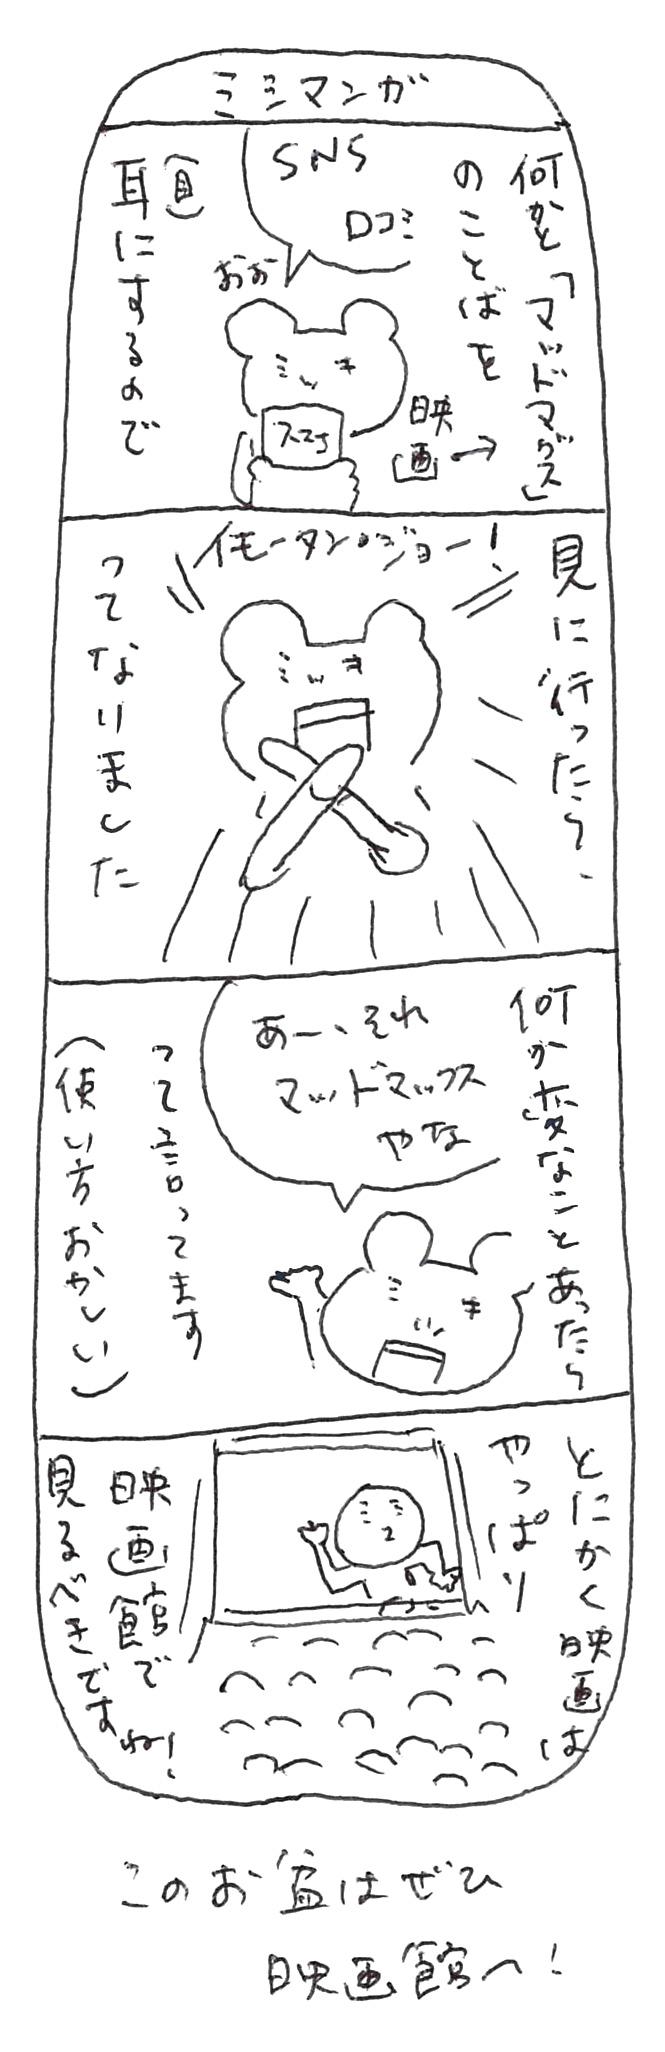 ミミマンガ
何かと「マッドマックス」
のことばを
映画→
SNS
口コミ
おお
ミッキ
スマホ
(目)
耳にするので
見に行ったら、
イモータン・ジョー！
ミッキ
ってなりました
何か変なことあったら
あー、それ
マッドマックス
やな
って言ってます
(使い方おかしい)
とにかく映画は
やっぱり
映画館で
見るべきですね！
このお盆はぜひ
映画館へ！